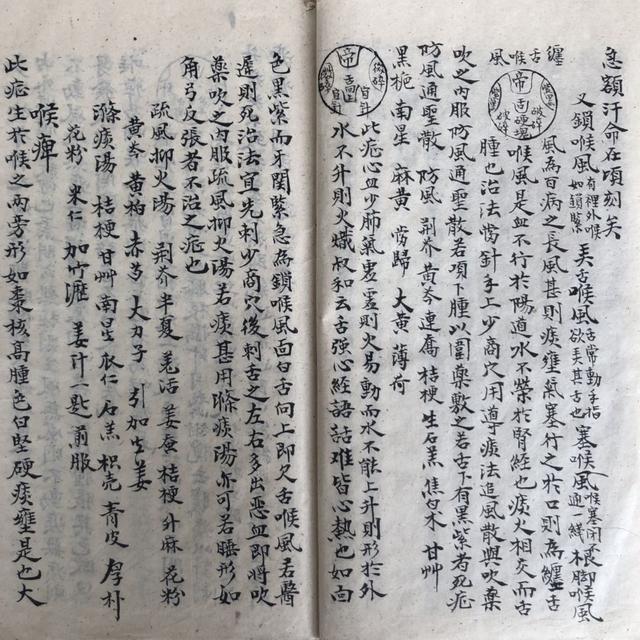 急額汗命在頃刻矣
又鎖喉風有裡外喉如鎖緊 美舌喉風舌常動手指欲美其舌也 塞喉風喉塞閉通一綫 柘脚喉風
纏舌喉風
帝 舌固硬塊 破碎
風為百病之長風甚則痰壅氣塞行之於口則為纏舌
喉風是血不行於陽道水不榮於腎經也痰火相交而舌
腫也治法當針手上少商穴用導痰法追風散與吹藥
吹之内服防風通聖散若項下腫以圍藥敷之若舌下有黑紫者死症
防風通聖散 防風 荆芥 黄芩 連翹 桔梗 生石羔 焦白朮 甘艸
黑梔 南星 麻黄 當歸 大黄 薄荷
帝 破碎
此症心血少肺氣虚虚則火易動而水不能上升則形於外
水不升則火熾叔和云舌强心經語話难皆心熱也如向
色黑紫而牙関緊急為鎖喉風面白舌向上即欠舌喉風若醫
遲則死治法宜先刺少商穴後刺舌之左右多出惡血即將吹
藥吹之内服疏風抑火湯若痰甚用滌痰湯亦可若睡形如
角弓反張者不治之症也
疏風抑火湯 荆芥 半夏 羌活 姜蚕 桔梗 升麻 花粉
黄芩 黄柏 赤芍 大力子 引加生姜
滌痰湯 桔梗 甘艸 南星 瓜仁 石羔 枳壳 青皮 厚朴
花粉 米仁 加竹瀝 姜汁一匙 煎服
喉痺
此症生於喉之兩旁形如棗核髙腫色白堅硬痰壅是也大